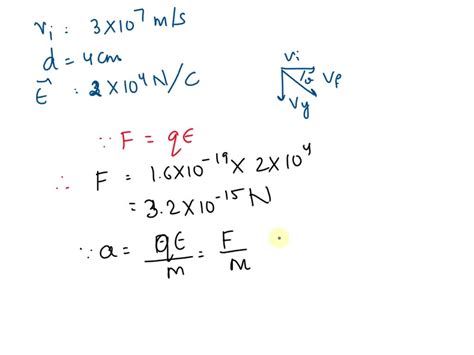 vi : 3×10⁷ m/s
d = 4cm
E⃗ : 2×10⁴ N/C
Vi
Vf
Vy
∵ F = qE
∴ F = 1.6×10⁻¹⁹ × 2×10⁴
= 3.2×10⁻¹⁵ N
∵ a = qE/m = F/m